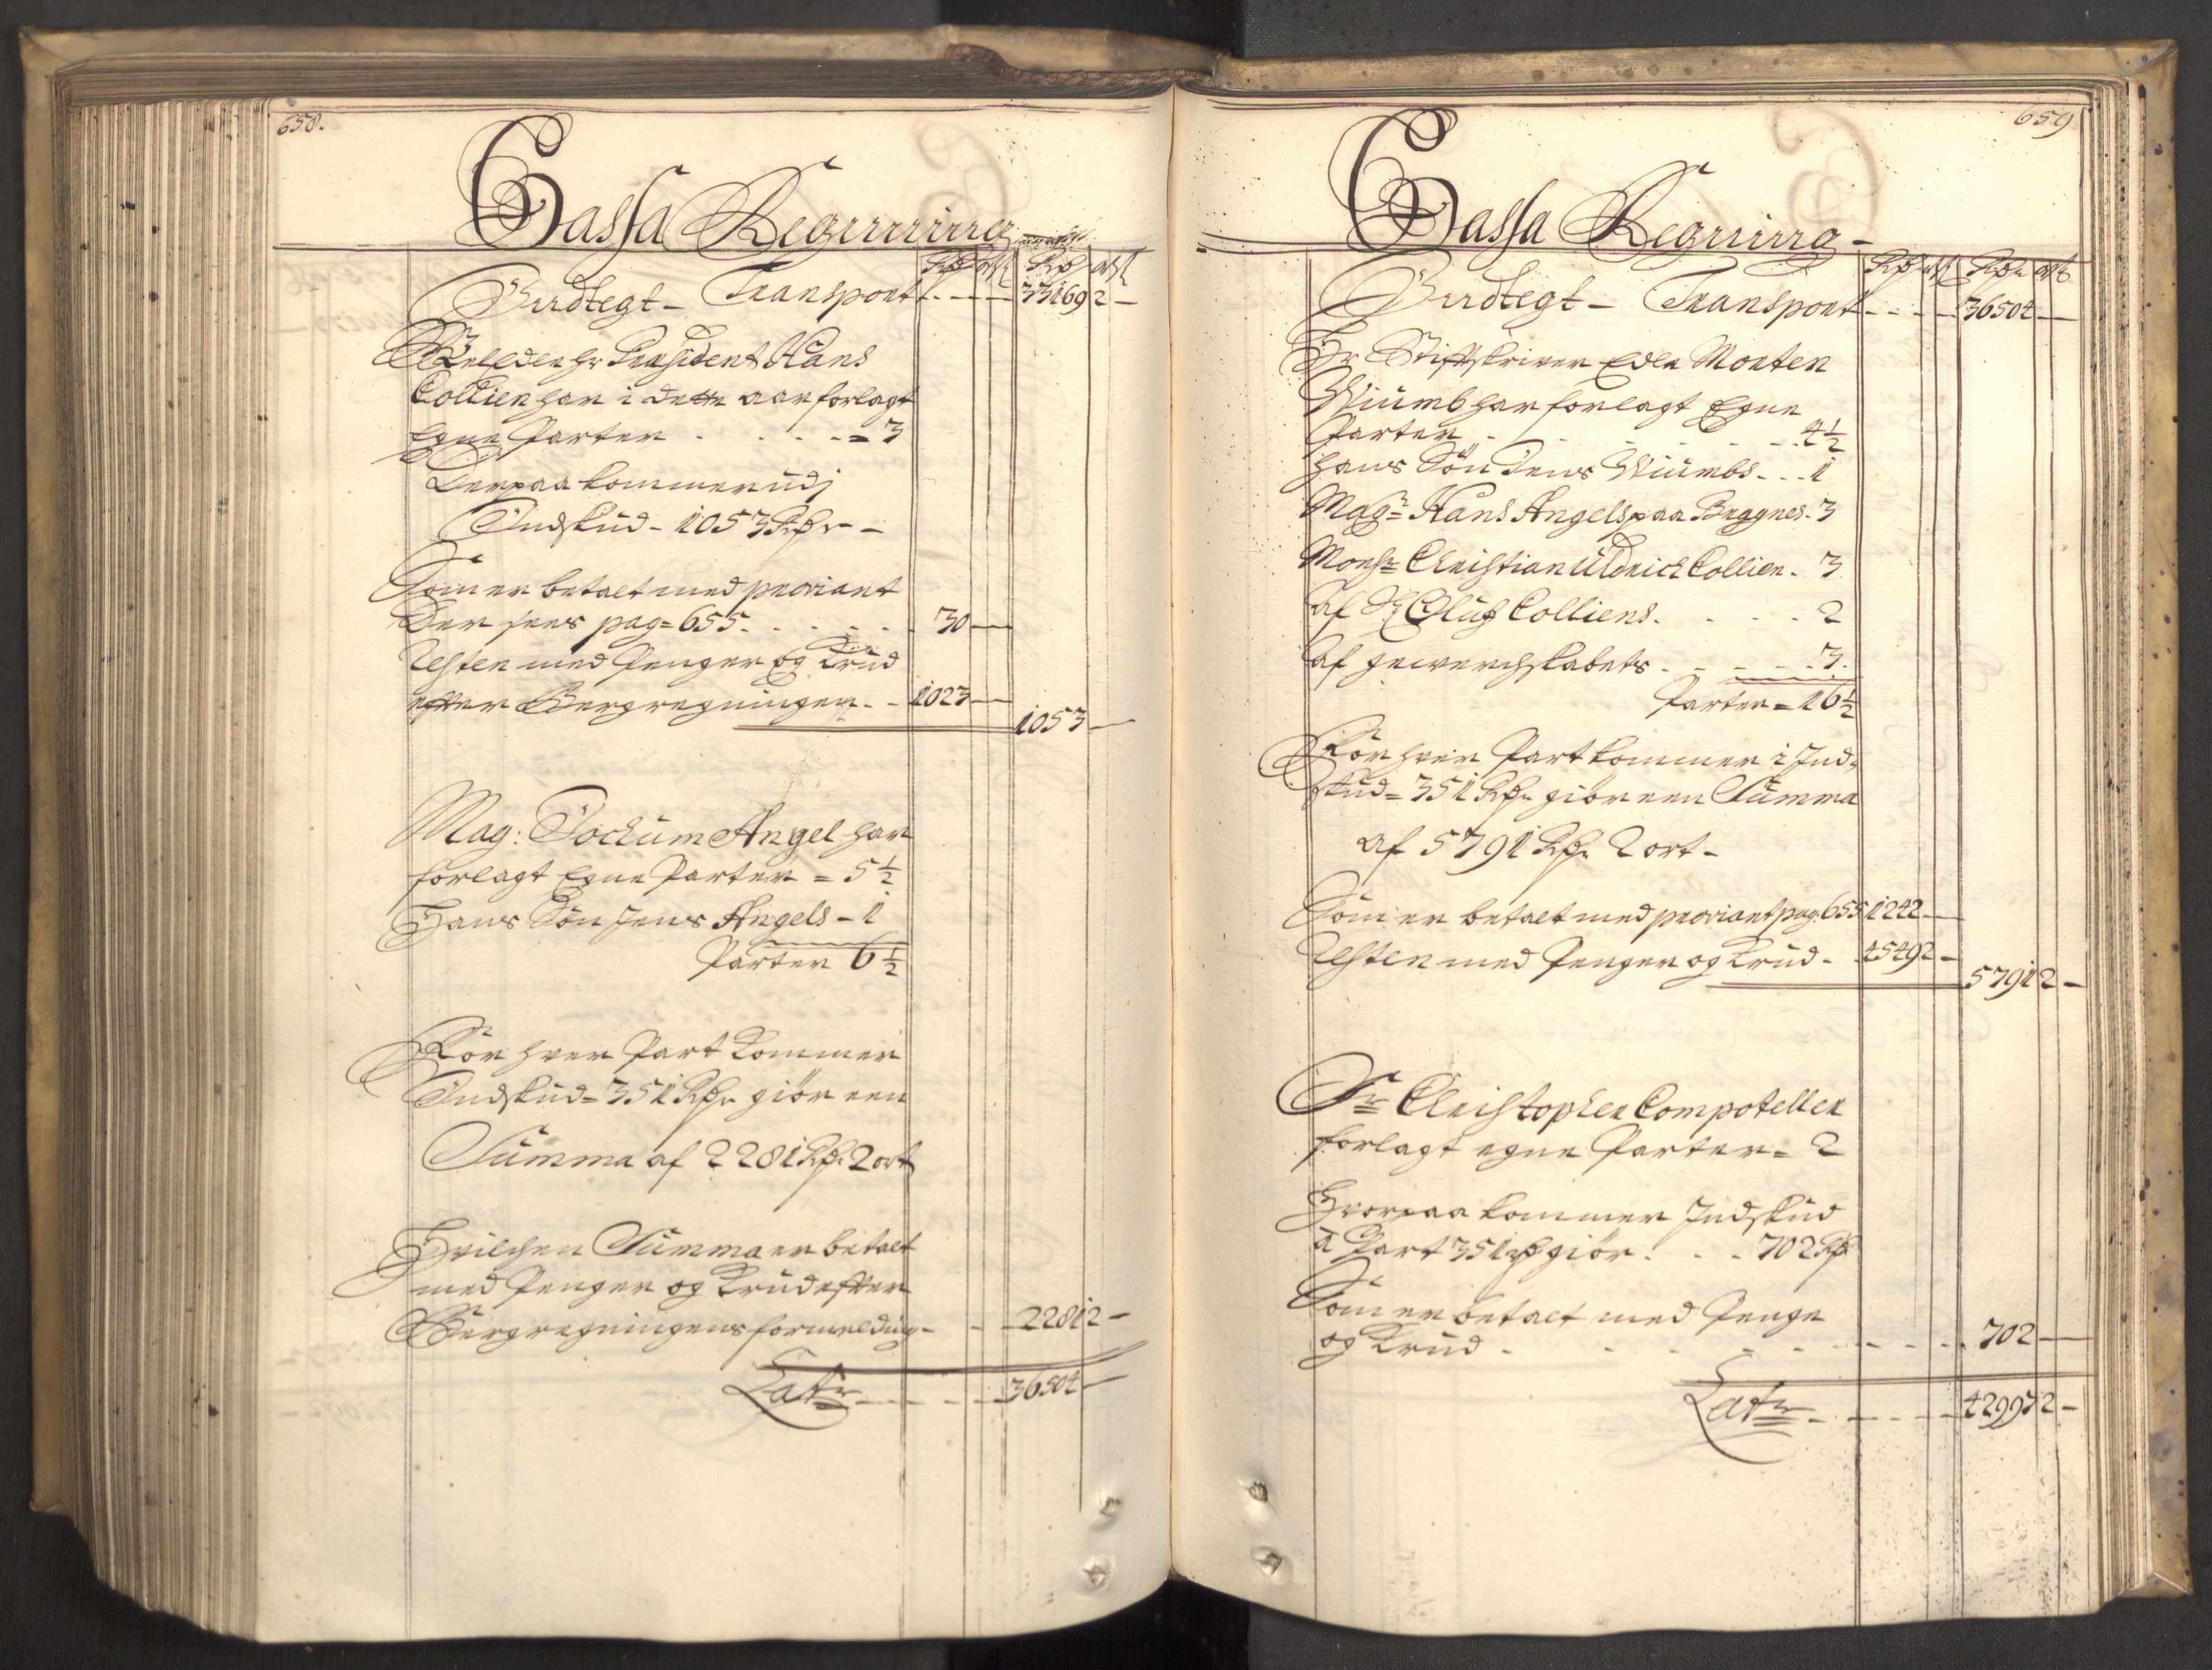 658.
Cassa Regnning
Rdr ort Rdr ort
Indtegt - Transport - - - 33169 2 -
Velædle hr President Hans
Collien har i dette aar forlagt
Egne Parter . . . . = 3
Derpaa kommer udj
Indskud - 1053 Rdr -
Som er betalt med proviant
Der sees pag= 655 . . . . . 30 -
Resten med Penger og Krud
efter Bergregningen - - 1023 -
1053 -
Mag: Jochum Angel har
forlagt Egne Parter = 5½
Hans Søn Jens Angels - 1
Parter 6½
For hver Part kommer
Indskud = 351 Rdr giør een
Summa af 2281 Rdr 2 ort
Hvilchen Summa er betalt
med Penger og Krud efter
Bergregningens formelding - - - 2281 2 -
Lat: - - - - 36504 -
659
Cassa Regning -
Rdr ort Rdr ort
Indtegt - Transport - - - 36504 -
Hr Stiftskriver Edle Morten
Wiumb har forlagt Egne
Parter - - - - - - 4½
Hans Søn Jens Wiumbs . . . 1
Magr Hans Angels paa Bragnes - 3
Monsr Christian Uldrich Collien - 3
Af Hr Oluf Colliens . . . . 2
Af gewerchskabets - - - - 3.
Parter = 16½
For hver Part kommer i Ind-
skud = 351 Rdr giør een Summa
Af 5791 Rdr 2 ort -
Som er betalt med proviant pag. 655 1242 -
Resten med Penger og Krud - 4549 2 -
5791 2 -
Sr Christopher Compoteller
forlagt egne Parter = 2
Hvorpaa kommer Indskud
a Part 351 rdr giør . . . 702 Rdr
Som er betalt med Penge
og Krud - - - - - - - 702 -
Lat: - - - - 42997 2 -